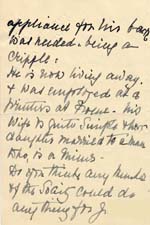 appliance for his back
was needed - being a
cripple:
He is now living away.
& was employed at a
printers at Frome. His
wife is quite simple & her
daughter married to a man
who, is a
Do you think any funds
of the Socy could do
anything for J